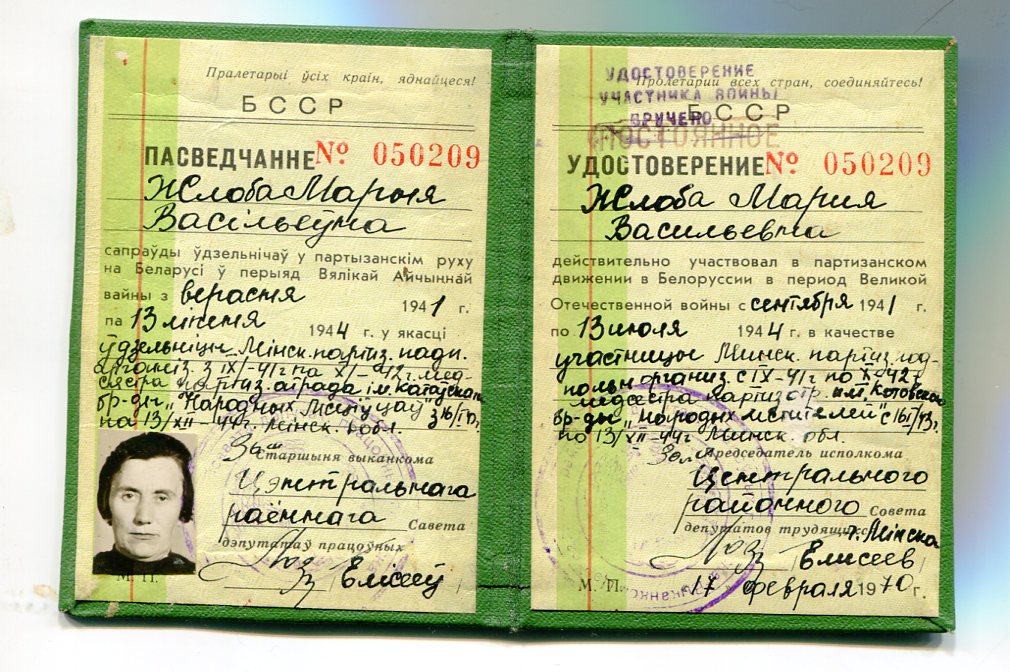 Пралетарыі ўсіх краін, яднайцеся!
БССР
ПАСВЕДЧАННЕ № 050209
Жлоба Марыя
Васільеўна
сапраўды ўдзельнічаў у партызанскім руху
на Беларусі ў перыяд Вялікай Айчыннай
вайны з верасня 1941 г.
па 13 ліпеня 1944 г. у якасці
ўдзельніцы Мінск. партыз. падп.
арганіз. з IX/-41г па X/-42г. мед-
сястра партыз. атрада ім. Катоўскага
бр-ды „Народных мсціўцаў" з 16/I-43г.
па 13/VII-44г. Мінск. обл.
Зам. старшыня выканкома
Цэнтральнага
раённага Савета
дэпутатаў працоўных
/Елисеў/
М. П.
УДОСТОВЕРЕНИЕ
УЧАСТНИКА ВОЙНЫ
ВРУЧЕНО
Пролетарии всех стран, соединяйтесь!
БССР
ПОСТОЯННОЕ
УДОСТОВЕРЕНИЕ № 050209
Жлоба Мария
Васильевна
действительно участвовал в партизанском
движении в Белоруссии в период Великой
Отечественной войны с сентября 1941 г.
по 13 июля 1944 г. в качестве
участницы Минск. партиз. под-
польн. организ. с IX-41г по X-42г.
медсестра партиз. отр. им. Котовского
бр-ды „Народных мстителей" с 16/I-43г.
по 13/VII-44г. Минск. обл.
Зам. Председатель исполкома
Центрального
районного Совета
депутатов трудящихся г. Минска
/Елисеев/
М. П. 17 февраля 1970 г.